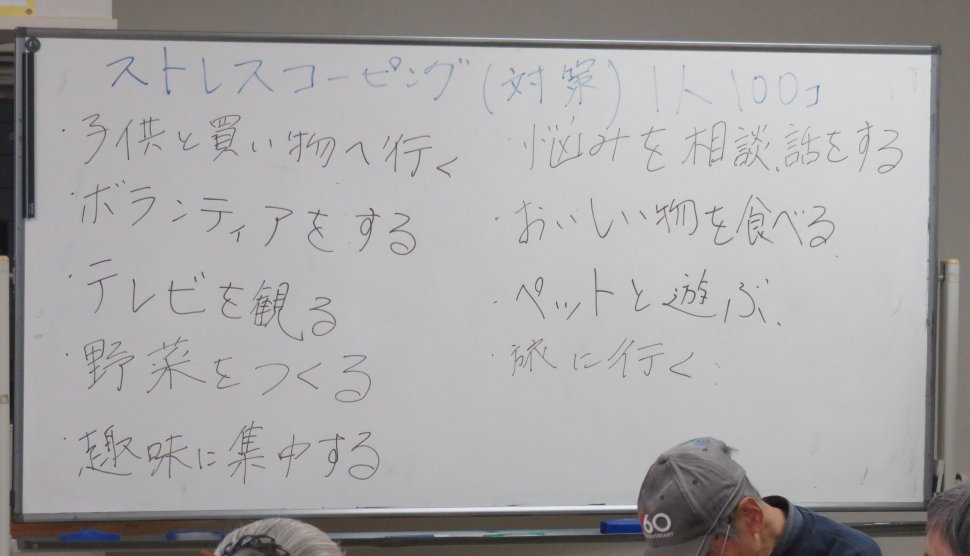 ストレスコーピング(対策) 1人100コ
・子供と買い物へ行く
・ボランティアをする
・テレビを観る
・野菜をつくる
・趣味に集中する
悩みを相談、話をする
・おいしい物を食べる
・ペットと遊ぶ
・旅に行く
60